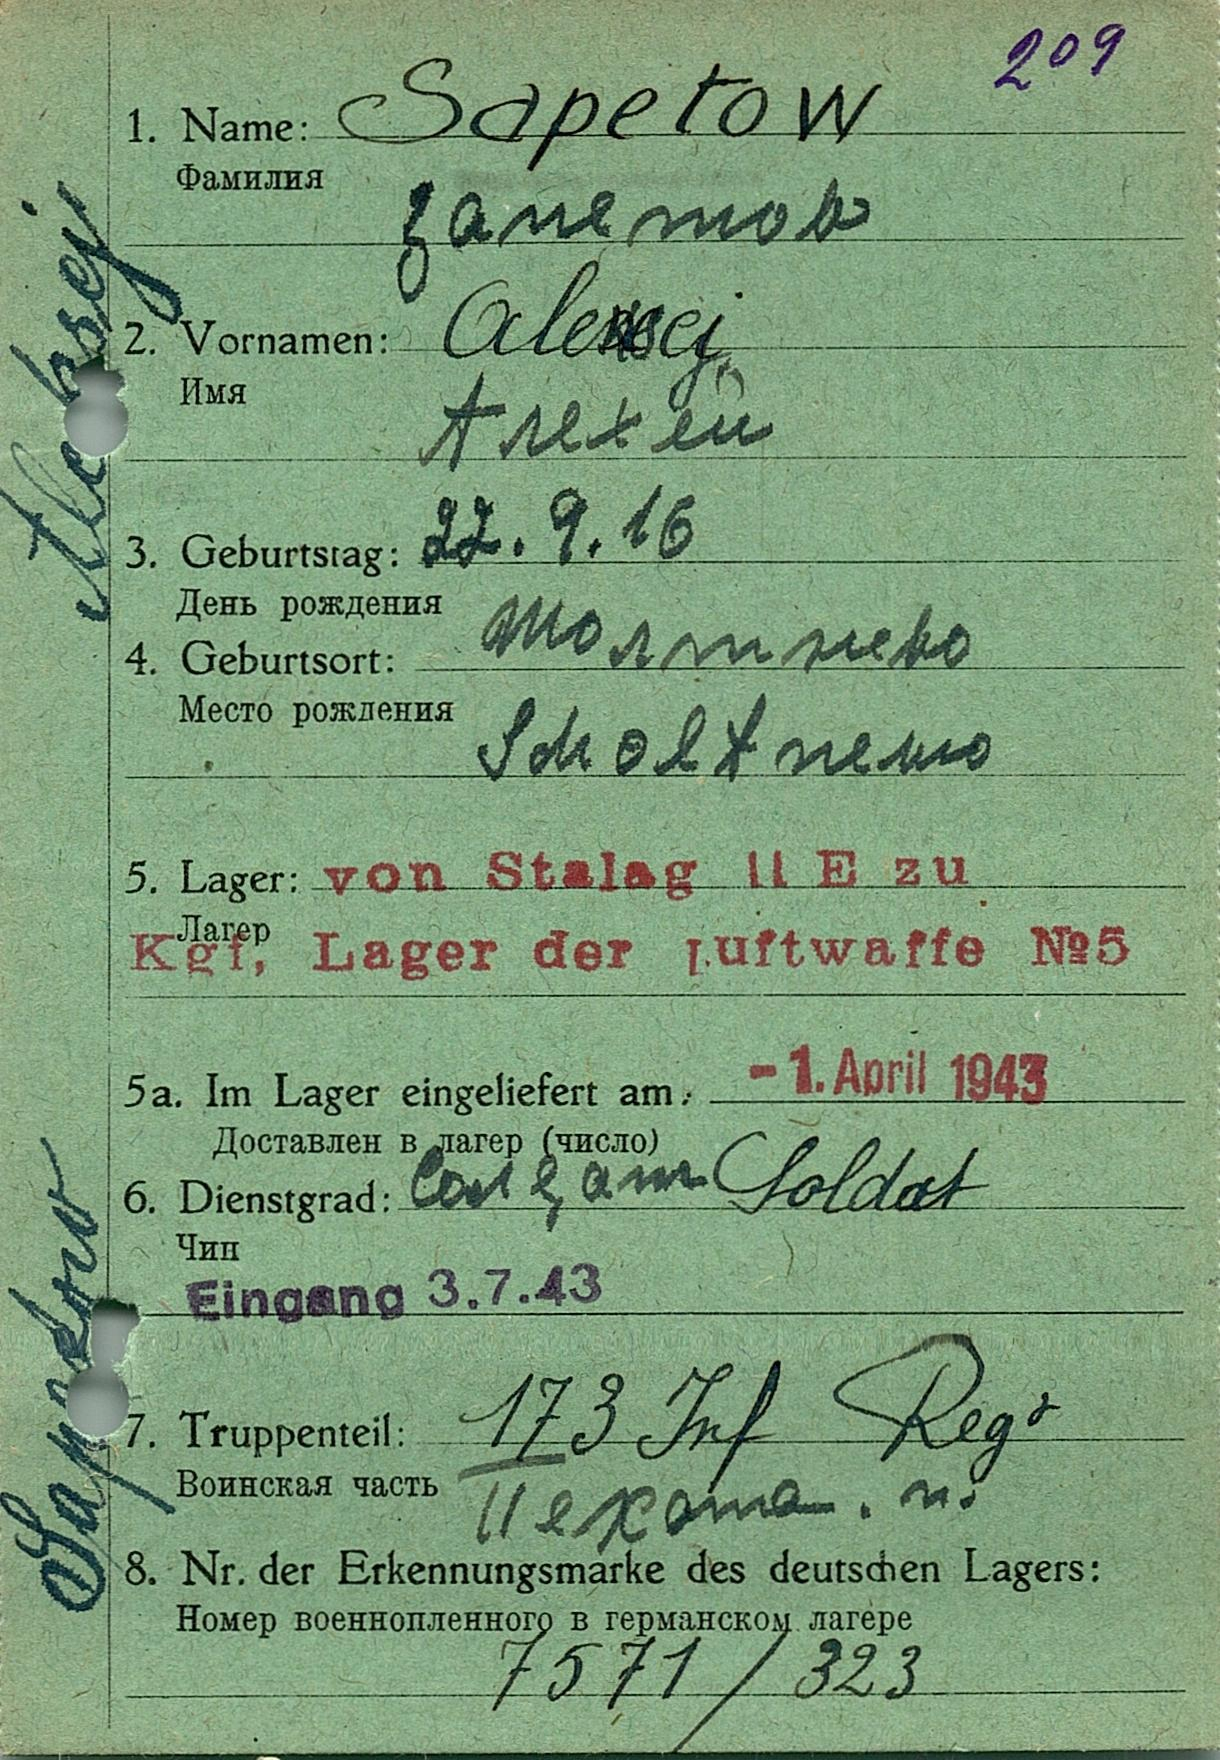 209
1. Name: Sapetow
Фамилия
Запетов
2. Vornamen: Aleksej
Имя
Алехей
3. Geburtstag: 22.9.16
День рождения
4. Geburtsort: Шолтнево
Место рождения
Scholtnewo
5. Lager: von Stalag II E zu
Лагер
Kgf. Lager der Luftwaffe №5
5a. Im Lager eingeliefert am: -1. April 1943
Доставлен в лагер (число)
6. Dienstgrad: Солдат Soldat
Чин
Eingang 3.7.43
7. Truppenteil: 173 Inf Regt
Воинская часть
Пехота. п.
8. Nr. der Erkennungsmarke des deutschen Lagers:
Номер военнопленного в германском лагере
7571/323
Sapetow Aleksej